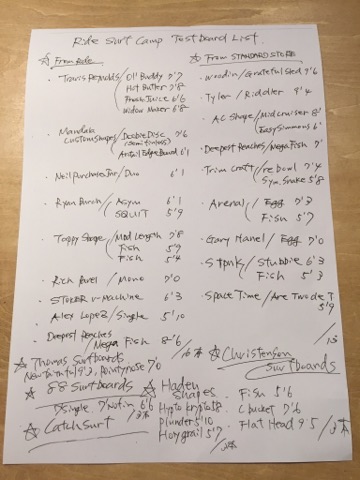 Ride Surf Camp Test board List.
☆ From Ride
・ Travis Reynolds / Ol' Buddy 7'7
Hot Butter 7'8
Fresh Juice 6'6
Widow Maker 6'8
・ Mandala Custom Shapes / Debbie Disc 7'6
(Semi finless)
Artail Edge Board 6'1
・ Neil Purchase Jnr / Duo 6'1
・ Ryan Burch / Asym 6'1
SQUIT 5'9
・ Toppy Shape / Mod Length 7'8
Fish 5'9
Fish 5'4
・ Rich Pavel / Mono 7'0
・ STOKER V-Machine 6'3
・ Alex Lopez / Single 5'10
・ Deepest Reaches / Mega Fish 8'6
/16本
☆ Thomas Surfboards
New Faithful 9'3, Pointy nose 7'0
☆ 88 Surfboards
7'single, 7'Nofin 6'6
/3本
☆ Catch Surf
☆ From STANDARD STORE
・ Woodin / Grateful Sled 7'6
・ Tyler / Riddler 9'4
・ AC Shape / Mid Cruiser 8'
Easy Simmons 6'
・ Deepest Reaches / Mega Fish 7'
・ Trim Craft / re bowl 7'4
Sym. Snake 5'8
・ Arenal / Egg 7'3
Fish 5'7
・ Gary Hanel / Egg 7'0
・ Stpnk / Stubbie 6'3
Fish 5'3
・ Space Time / Arc Twode T
5'9
/13
☆ Christenson Surfboards
・ Fish 5'6
・ C bucket 7'6
・ Flat Head 9'5 /3本
☆ Haden Shapes
Hypto krypto 5'8
Plunder 5'10
Holy grail 5'7